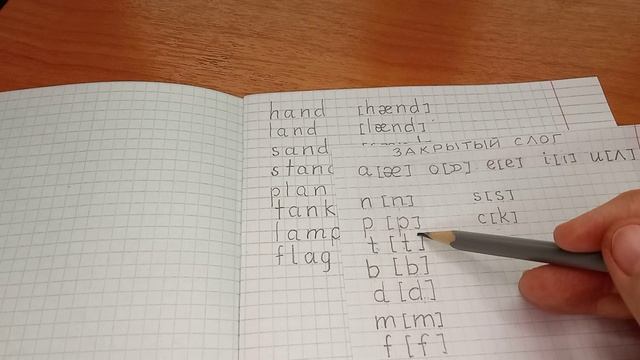 hand [hænd]
land [lænd]
sand
stand
plan
tank
lamp
flag
ЗАКРЫТЫЙ СЛОГ
a[æ] o[ɒ] e[e] i[ı] u[ʌ]
n [n] s[s]
p [p] c[k]
t [t]
b [b]
d [d]
m [m]
f [f]